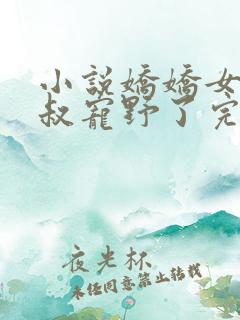 小說嬌嬌女
叔寵野了完
夜光杯
未經同意禁止轉載